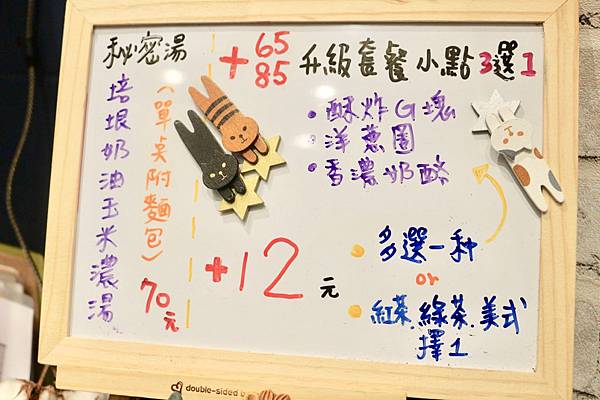 秘密湯
(單點附麵包)
培垠奶油玉米濃湯
70元
+65
85
升級套餐 小點3選1
•酥炸G塊
•洋蔥圈
•香濃奶酪
+12元
•多選一种
or
•紅茶.綠茶.美式
擇1
double-sided